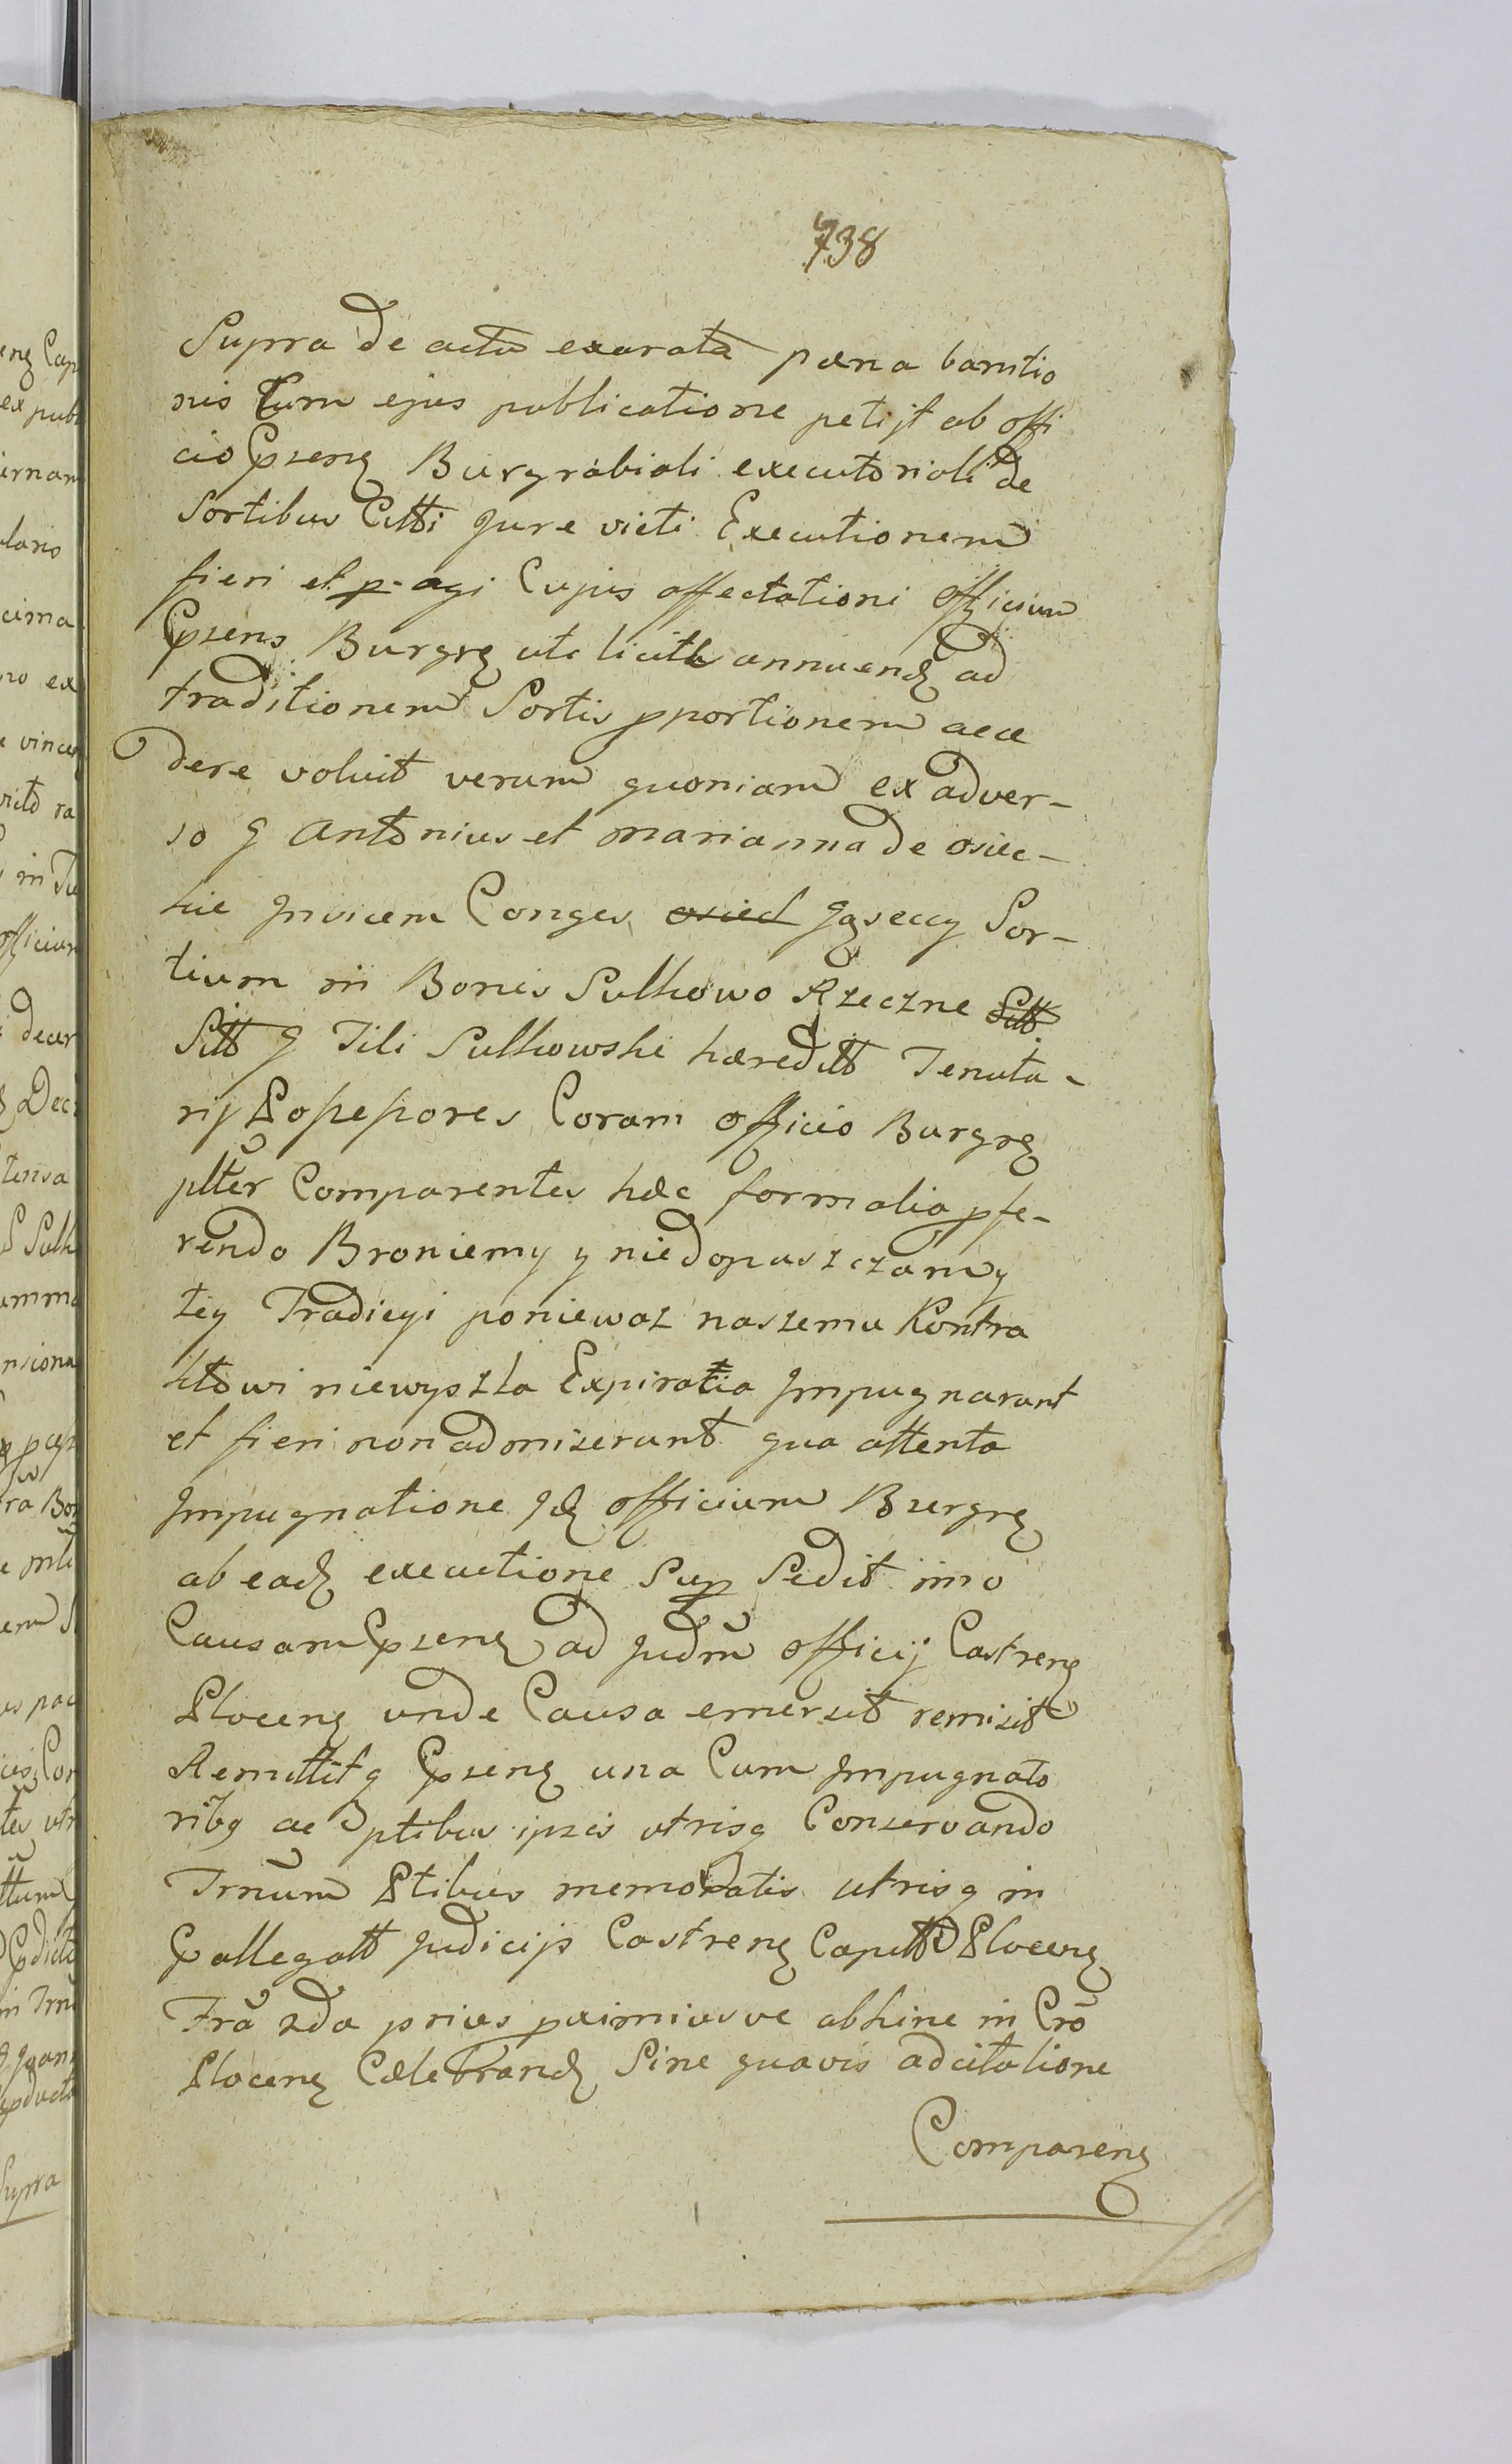 738
Supra de actu exarata pæna banitio
nis Cum ejus publicatione petijt ab offi
cio Pprsens Burgrabiali executoriali de
Sortibus Citti jure victi Executionem
fieri et p-agi Cujus affectationi officium
Ppsens Burgr ute licite annuend ad
traditionem Sortis pportionem acce
dere voluit verum quoniam ex adver-
so G Antonius et Marianna de osiec-
kie Invicem Conges Gąseccy Sor-
tium in Bonis Sulkowo Rzeczne
Sitt G Tili Sulkowski hæreditt Tenuta-
rij Posessores Coram officio Burgr
plter Comparentes hæc formalia pfe-
rendo Broniemy y niedopuszczamy
tey Tradicyi poniewaz naszemu Kontra
ktowi niewyszla Expiratia Impugnarunt
et fieri non admiserunt qua attenta
Impugnatione Id officium Burgr
ab ead executione Sup Sedit imo
Causam Ppsens ad Judm officij Castrens
Plocens unde Causa emersit remisit
Remittitq Ppsens una Cum Impugnato
ribq ac ptibus ipsis utrisq Conservando
Trnum Ptibus memoratis utrisq in
Ppallegatt Judicijs Castrens Capitt Plocens
fra 2da prius pximiusve abhinc in Cro
Plocens Cælebrand Sine quavis adcitatione
Comparens